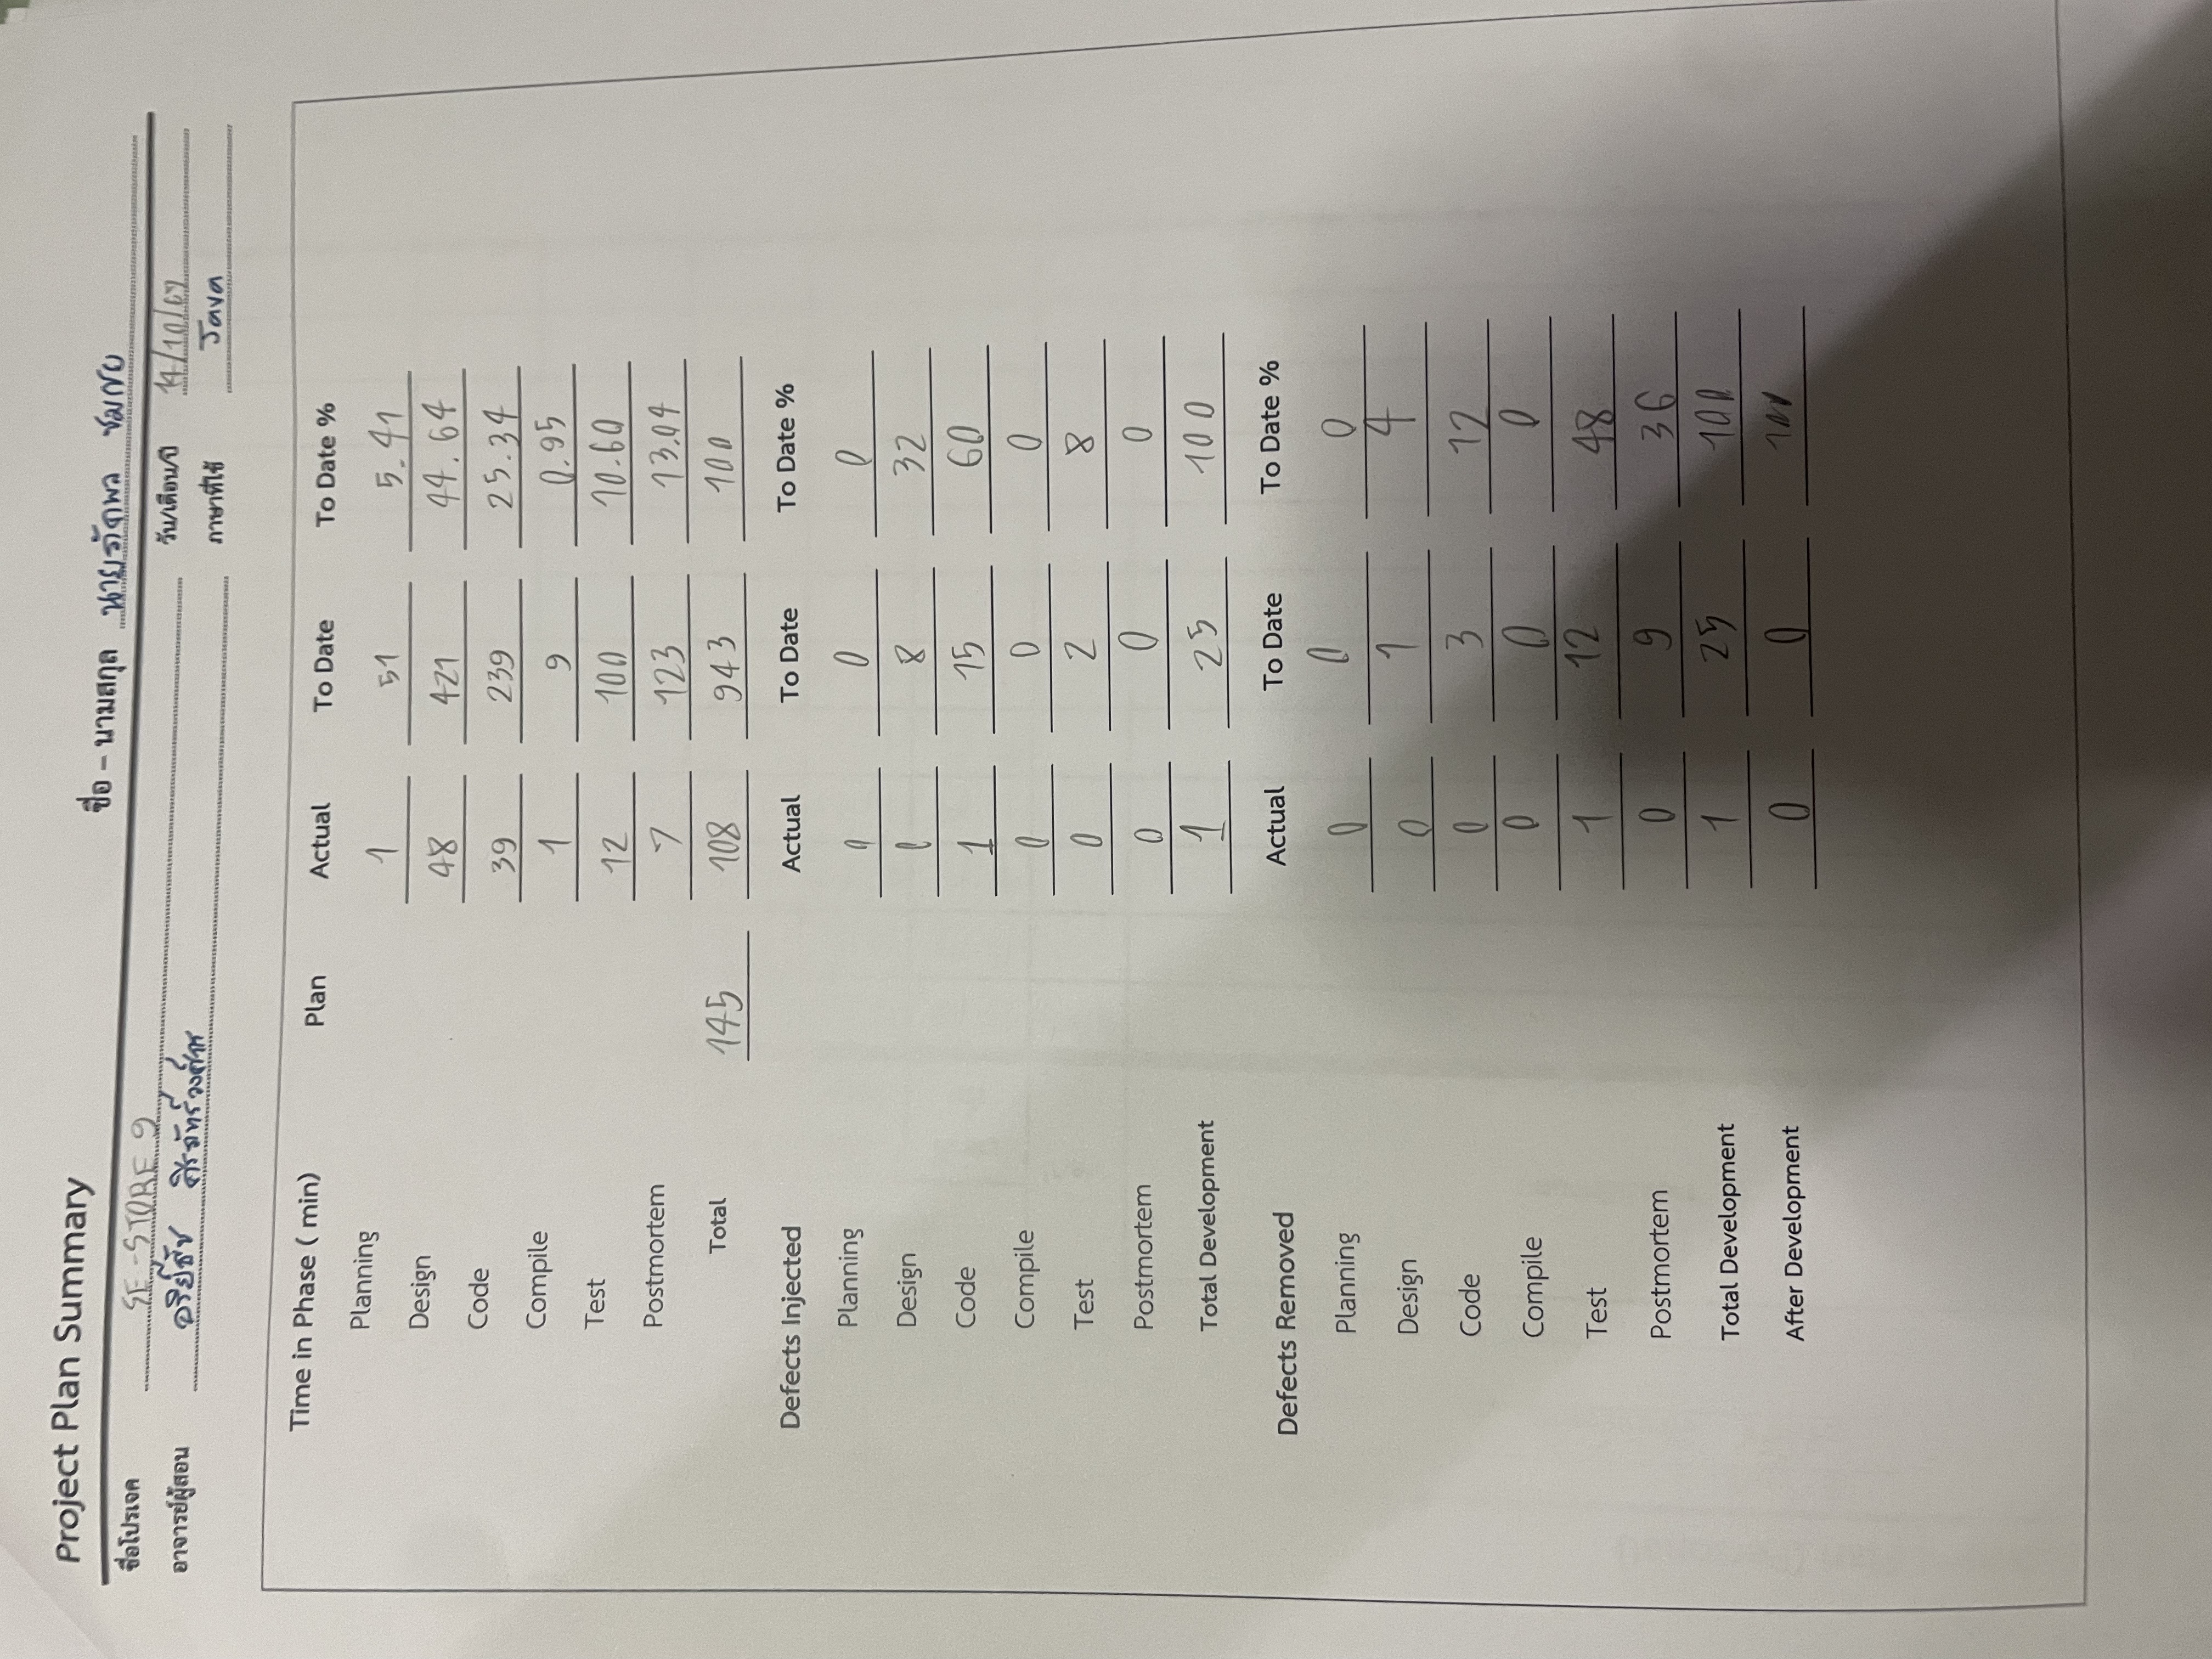 Project Plan Summary
ชื่อ – นามสกุล นายภัคพล
ชื่อโปรเจค SE-STORE 9
วัน/เดือน/ปี 14/10/67
อาจารย์ผู้สอน อริย์ธัช
ภาษาที่ใช้ Java
Time in Phase ( min) Plan Actual To Date To Date %
Planning 1 51 5.41
Design 48 421 44.64
Code 39 239 25.34
Compile 1 9 0.95
Test 12 100 10.60
Postmortem 7 123 13.04
Total 145 108 943 100
Defects Injected Actual To Date To Date %
Planning 0 0 0
Design 0 8 32
Code 1 15 60
Compile 0 0 0
Test 0 2 8
Postmortem 0 0 0
Total Development 1 25 100
Defects Removed Actual To Date To Date %
Planning 0 0 0
Design 0 1 4
Code 0 3 12
Compile 0 0 0
Test 1 12 48
Postmortem 0 9 36
Total Development 1 25 100
After Development 0 0 100